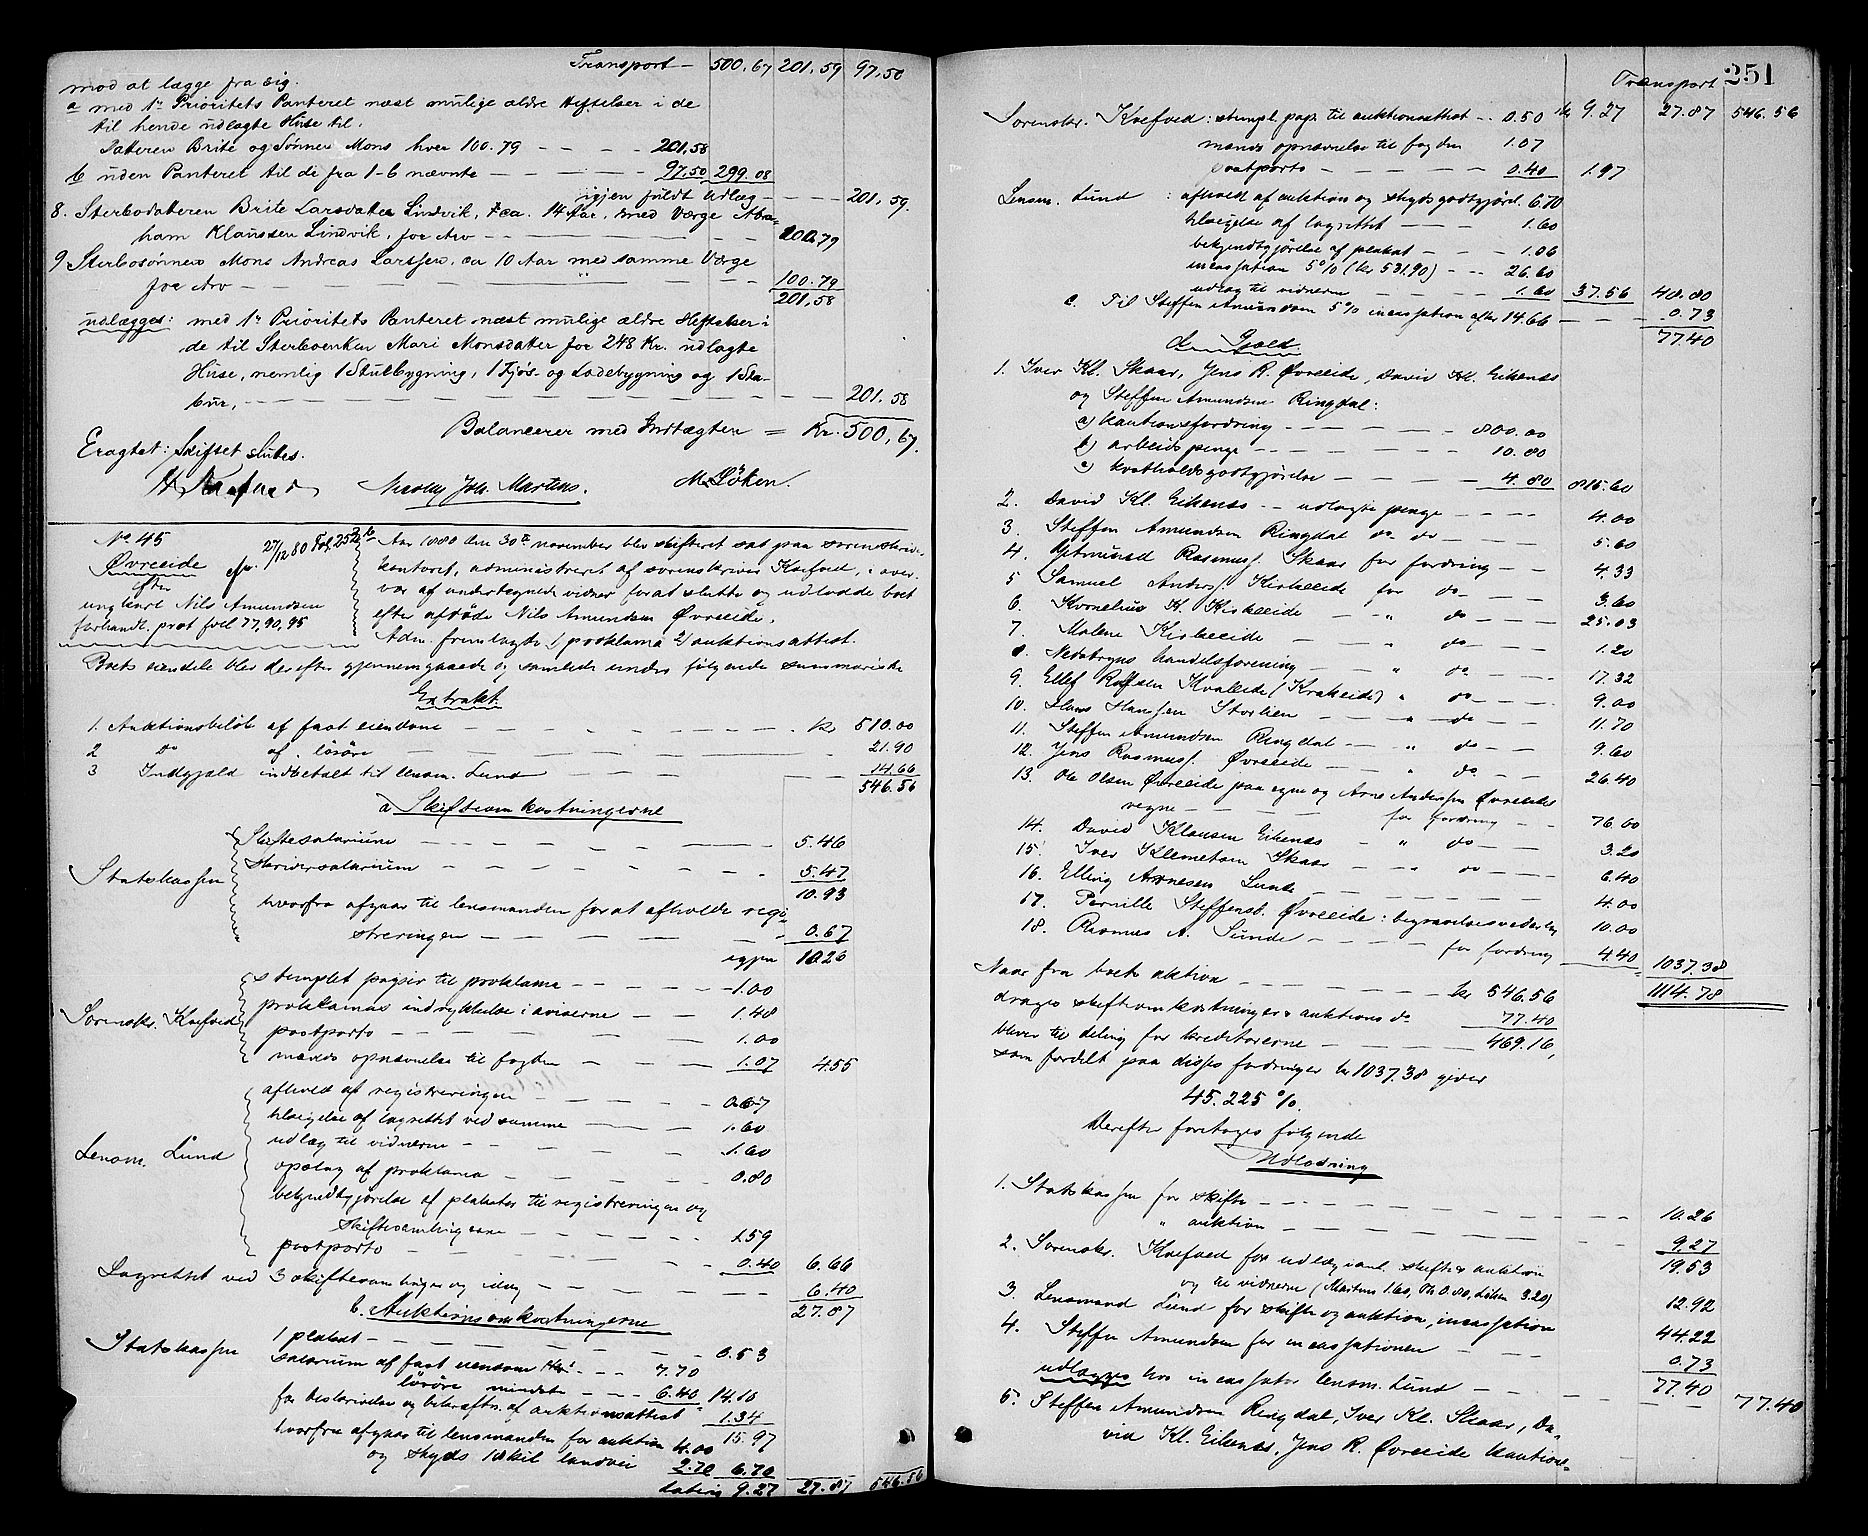 Transport — 500,67 201,59 97,50
mod at lægge fra sig.
a med 1ste Prioritets Panteret næst mulige ældre Heftelser i de
til hende udlagte Huse til.
Datteren Brite og Sønnen Mons hver 100.79 — — — — 201,58
b uden Panteret til de fra 1-6 nævnte — — — — — 97,50 299.08
igjen fuldt Udlæg — — — — 201,59.
8. Sterbodatteren Brite Larsdatter Lindvik, ca. 14 Aar, med Værge Abra-
ham Klaussen Lindvik, for Arv — — — — — 100.79
9 Sterbosønnen Mons Andreas Larssen, ca 10 Aar med samme Værge
for Arv — — — — — — 100.79
201,58
udlægges: med 1ste Prioritets Panteret næst mulige ældre Heftelser i
de til Sterboenken Mari Monsdatter for 248 Kr. udlagte
Huse, nemlig 1 Stuebygning, 1 Fjøs- og Ladebygning og 1 Sta-
bur, — — — — — — 201.58
Balancerer med Indtægten = Kr. 500,67.
Eragtet: Skiftet slutes.
Nicolay Joh. Martens. M. Löken.
No 45
Øvreeide 27/12 80 Fol. 252
efter
ungkarl Nils Amundsen
forhandl. prot fol 77, 90, 95
Aar 1880 den 30te november blev skifteret sat paa sorenskriver-
kontoret, administreret af sorenskriver Knefved, i over-
vær af undertegnede vidner for at slutte og udlodde boet
efter afdøde Nils Amundsen Øvreeide.
Adm. fremlagde 1) proklama 2) auktionsattest.
Boets eiendele blev derefter gjennemgaaede og samlede under følgende summariske
Extrakt
1. Auktionsbeløb af fast eiendom — — — — kr 510.00
2 do af løsøre — — — — 21.90
3 Indgjæld indbetalt til lensm. Lund — — — 14.66
546.56
a Skifteomkostningerne
Statskassen
Skiftesalarium — — — — 5.46
Skriversalarium — — — — 5.47
10.93
hvorfra afgaar til lensmanden for at afholde regi-
streringen — — — — 0.67
igjen 10.26
Sorenskr. Knefved
stemplet papir til proklama — — — — 1.00
proklamas indrykkelse i aviserne — — 1.48
postporto — — — — 1.00
mænds opnævnelse til fogden — — 1.07 4.55
Lensm. Lund
afhold af registreringen — — — 0.67
tilsigelse af lagrettet ved samme — — 1.60
udlæg til vidnerne — — — 1.60
opslag af proklama — — — 0.80
bekjendtgjørelse af plakater til registreringen og
skiftesamlingerne — — — 1.59
postporto — — — 0.40 6.66
Lagrettet ved 3 skiftesamlinger og idag — — — 6.40
27.87
b. Auktionsomkostningerne
Statskassen 1 plakat — — — — 0.53
salarium af fast eiendom — — 7.70
løsøre mindste — — 6.40 14.10
for beskrivelse og bekræftn. af auktionsattest 1.34
15.97
hvorfra afgaar til lensmanden for auktion 4.00
og skyds landvei 2.70 6.70
9.27 27.87 546.56
251
Transport
Sorenskr. Knefved: stempl. pap. til auktionsattest — 0.50 kr 9.27 27.87 546.56
mænds opnævnelse til fogden 1.07
postporto — — — — 0.40 1.97
Lensm. Lund : afhold af auktion og skydsgodtgjörel. 6.70
tilsigelse af lagrettet — — — 1.60
bekjendtgjörelse af plakat — — — 1.06
incassation 5% (kr 531.90) — — 26.60
udlæg til vidnerne — — — 1.60 37.56 48.80
c. Til Steffen Amundsen 5% incassation efter 14.66 — — — 0.73
77.40
d. Gjæld.
1. Iver Kl. Skaar, Jens R. Øvreeide, David Kl. Eikenæs
og Steffen Amundsen Ringdal:
a) kautionsfordring — — — — 800.00
b) arbeidspenge — — — — 10.80
c) kostholdsgodtgjörelse — — — 4.80 815.60
2. David Kl. Eikenæs — udlagte penge — — — 4.00
3. Steffen Amundsen Ringdal do do — — — 5.60
4. Rasmuss. Skaar for fordring — — 4.33
5 Samuel Anders. Kirkeeide for do — — 3.60
6. Kornelius K. Kirkeeide — " do — — 25.03
7. Malene Kirkeeide — " do — — 1.20
8. Nedstryns handelsforening — — " do — — 17.32
9. Ellef Kvaleeide (Krakeeide) " do — — 9.00
10. Hans Hanssen Storlien — — " do — — 11.70
11. Steffen Amundsen Ringdal — " do — — 9.60
12. Jens Rasmuss. Øvreeide — — " do — — 26.40
13. Ole Olsen Øvreeide paa egne og Arne Anderssen Øvreeides
vegne — — — for fordring — — 76.60
14. David Klausen Eikenæs — " do — — 3.20
15. Iver Klemetsen Skaar — — " do — — 6.40
16. Elling Arnesen Lunde — — — — 4.00
17. Pernille Steffensd. Øvreeide: begravelsesvederlag 10.00
18. Rasmus A. Sunde — — — for fordring 4.40 1037.38
1114.78
Naar fra boets aktiva — — — — kr 546.56
drages skifteomkostninger & auktions do 77.40
bliver til deling for kreditorerne — — — 469.16,
som fordelt paa disses fordringer kr 1037.38 giver
45.225 %.
Derefter foretoges følgende
Udlodning
1. Statskassen for skifte — — — — 10.26
" auktion — — — — 9.27
19.53
2. Sorenskr. Knefved for udlæg anl. skifte & auktion
og til vidnerne (Martens 1.60, 0.80, Löken 3.20) 12.92
3. Lensmand Lund for skifte og auktion, incassation 44.22
4. Steffen Amundsen for incassationen — — — 0.73
77.40
udlægges hos incassator lensm. Lund — — — — 77.40
5. Steffen Amundsen Ringdal, Iver Kl. Skaar, Da-
vid Kl. Eikenæs, Jens R. Øvreeide kautions-